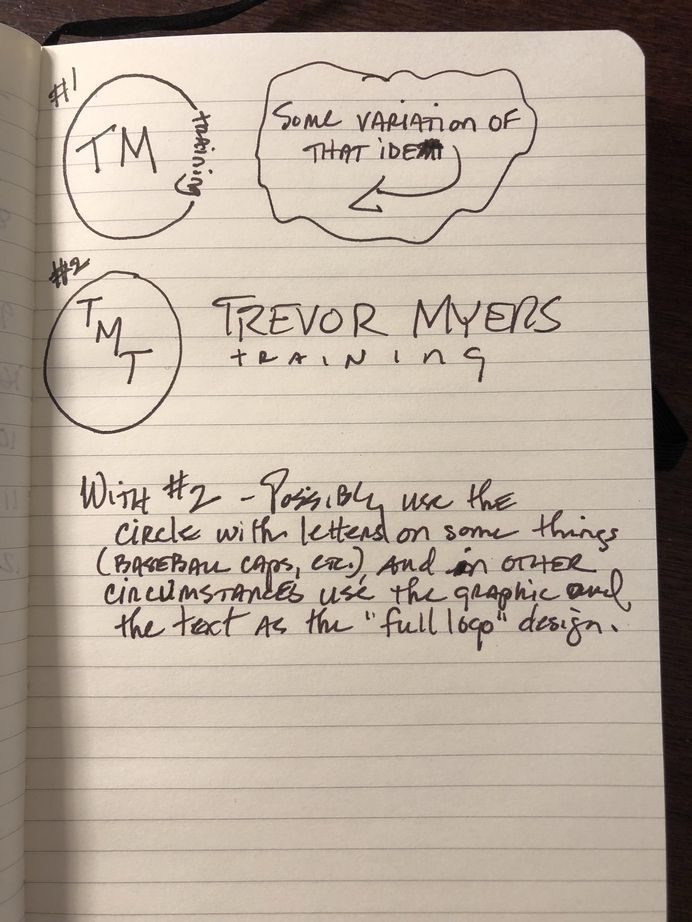 #1
TM
training
Some VARIATION OF
THAT IDEA
#2
T
M
T
TREVOR MYERS
TRAINING
WITH #2 - Possibly use the
circle with letters on some things
(BASEBALL CAPS, ETC.) AND in OTHER
circumstances use the graphic and
the text as the "full logo" design.